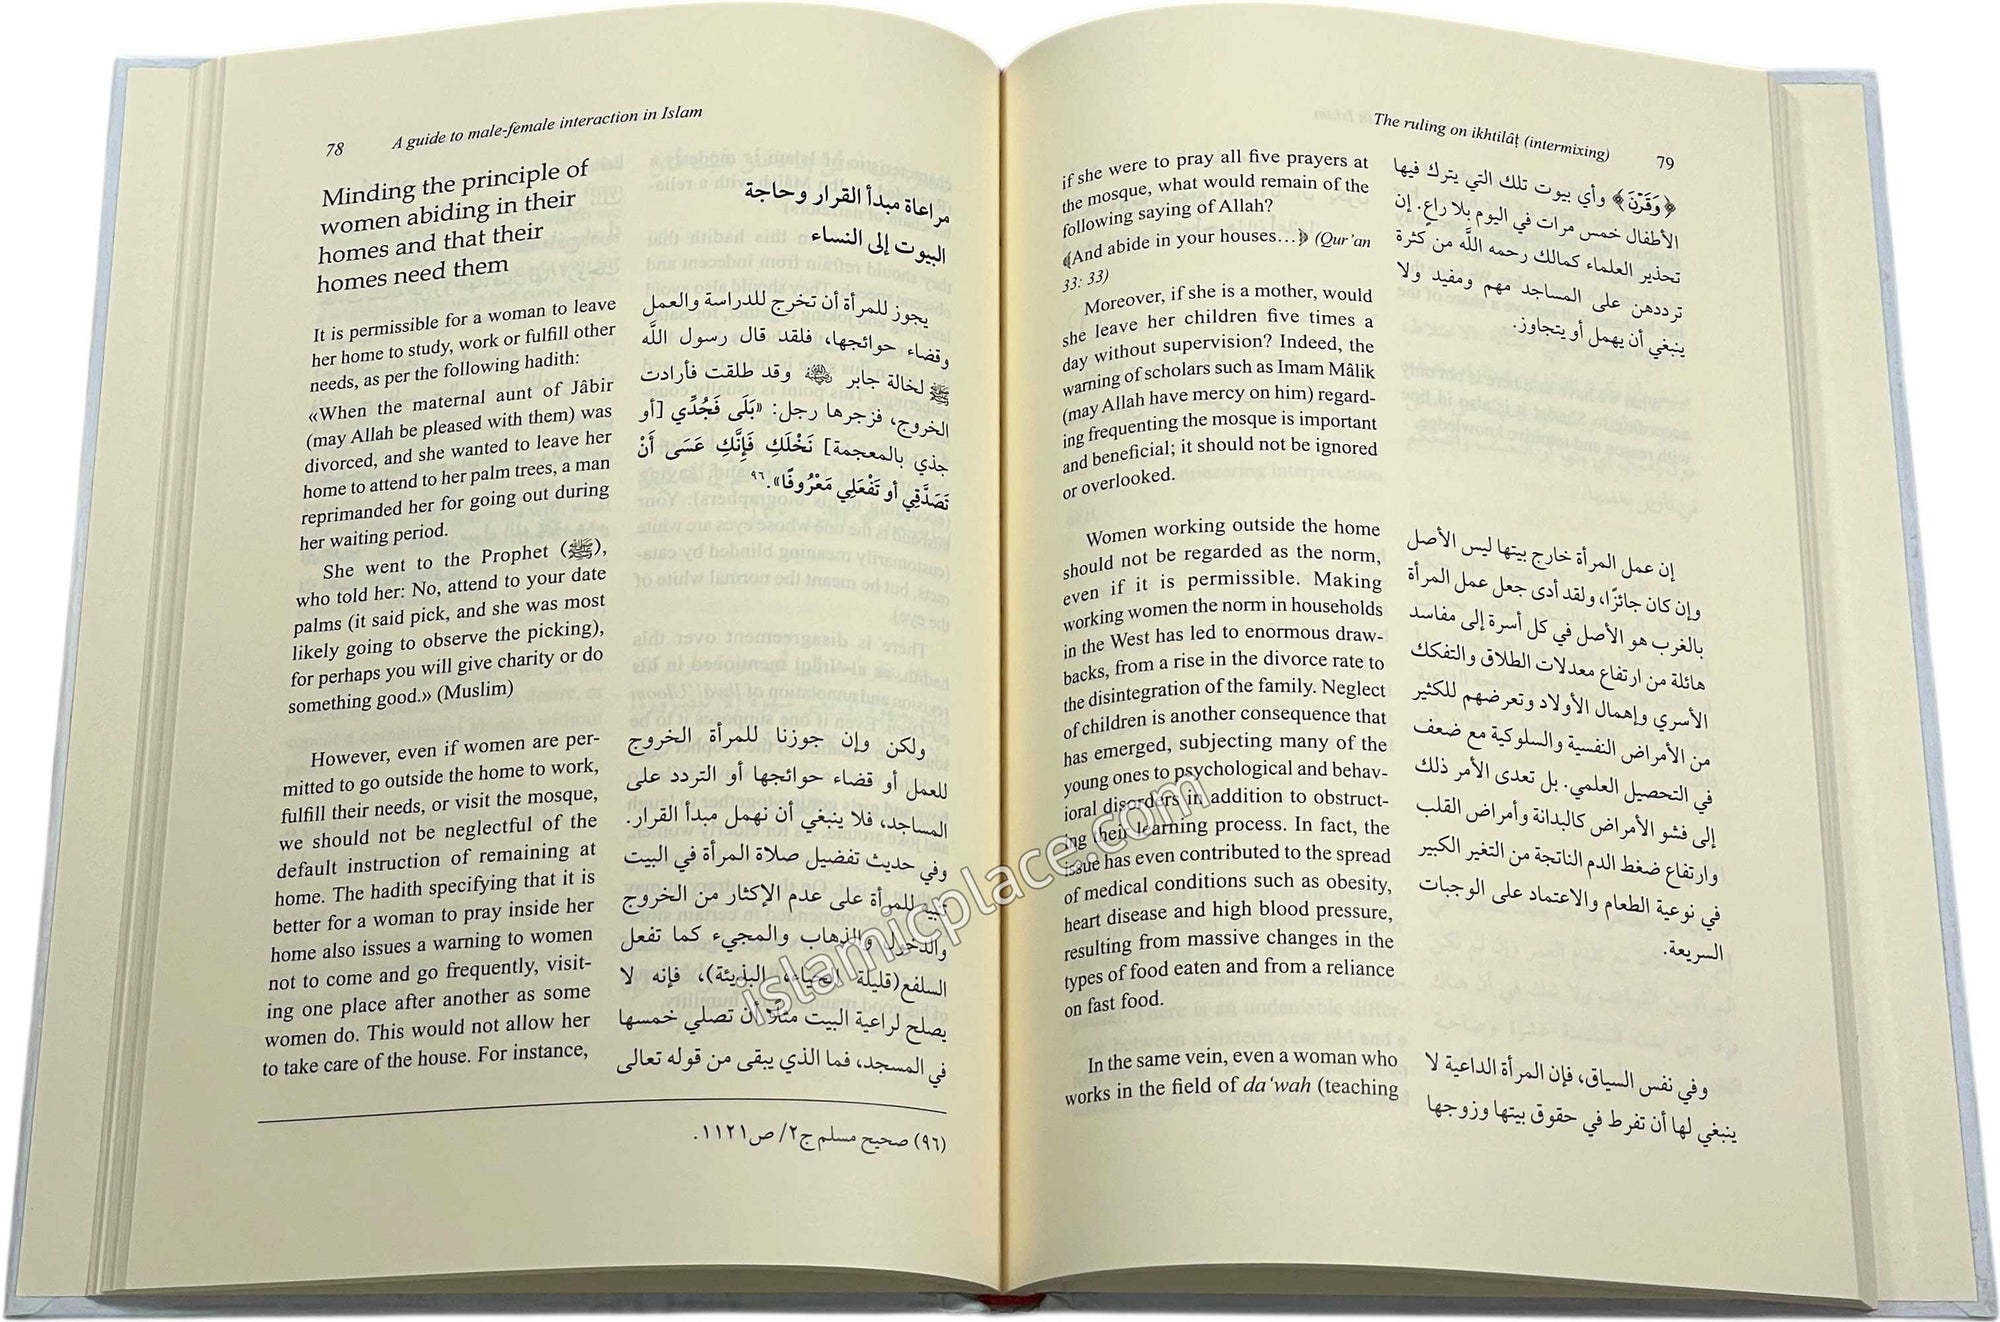 78
A guide to male-female interaction in Islam
Minding the principle of
women abiding in their
homes and that their
homes need them
It is permissible for a woman to leave
her home to study, work or fulfill other
needs, as per the following hadith:
«When the maternal aunt of Jâbir
(may Allah be pleased with them) was
divorced, and she wanted to leave her
home to attend to her palm trees, a man
reprimanded her for going out during
her waiting period.
She went to the Prophet (ﷺ),
who told her: No, attend to your date
palms (it said pick, and she was most
likely going to observe the picking),
for perhaps you will give charity or do
something good.» (Muslim)
However, even if women are per-
mitted to go outside the home to work,
fulfill their needs, or visit the mosque,
we should not be neglectful of the
default instruction of remaining at
home. The hadith specifying that it is
better for a woman to pray inside her
home also issues a warning to women
not to come and go frequently, visit-
ing one place after another as some
women do. This would not allow her
to take care of the house. For instance,
مراعاة مبدأ القرار وحاجة
البيوت إلى النساء
يجوز للمرأة أن تخرج للدراسة والعمل
وقضاء حوائجها، فلقد قال رسول اللَّه
ﷺ لخالة جابر وقد طلقت فأرادت
الخروج، فزجرها رجل: «بَلَى فَجُدِّي [أو
جذي بالمعجمة] نَخْلَكِ فَإِنَّكِ عَسَى أَنْ
تَصَدَّقِي أو تَفْعَلِي مَعْرُوفًا».٩٦
ولكن وإن جوزنا للمرأة الخروج
للعمل أو قضاء حوائجها أو التردد على
المساجد، فلا ينبغي أن نهمل مبدأ القرار.
وفي حديث تفضيل صلاة المرأة في البيت
تنبيه للمرأة على عدم الإكثار من الخروج
والدخول والذهاب والمجيء كما تفعل
السلفع(قليلة الحياء، البذيئة)، فإنه لا
يصلح لراعية البيت مثلًا أن تصلي خمسها
في المسجد، فما الذي يبقى من قوله تعالى
(٩٦) صحيح مسلم ج٢/ ص١١٢١.
The ruling on ikhtilâṭ (intermixing)
79
if she were to pray all five prayers at
the mosque, what would remain of the
following saying of Allah?
﴾And abide in your houses…﴿ (Qur'an
33: 33)
Moreover, if she is a mother, would
she leave her children five times a
day without supervision? Indeed, the
warning of scholars such as Imam Mâlik
(may Allah have mercy on him) regard-
ing frequenting the mosque is important
and beneficial; it should not be ignored
or overlooked.
Women working outside the home
should not be regarded as the norm,
even if it is permissible. Making
working women the norm in households
in the West has led to enormous draw-
backs, from a rise in the divorce rate to
the disintegration of the family. Neglect
of children is another consequence that
has emerged, subjecting many of the
young ones to psychological and behav-
ioral disorders in addition to obstruct-
ing their learning process. In fact, the
issue has even contributed to the spread
of medical conditions such as obesity,
heart disease and high blood pressure,
resulting from massive changes in the
types of food eaten and from a reliance
on fast food.
In the same vein, even a woman who
works in the field of da‘wah (teaching
﴿وَقَرْنَ﴾ وأي بيوت تلك التي يترك فيها
الأطفال خمس مرات في اليوم بلا راعٍ. إن
تحذير العلماء كمالك رحمه اللَّه من كثرة
ترددهن على المساجد مهم ومفيد ولا
ينبغي أن يهمل أو يتجاوز.
إن عمل المرأة خارج بيتها ليس الأصل
وإن كان جائزًا، ولقد أدى جعل عمل المرأة
بالغرب هو الأصل في كل أسرة إلى مفاسد
هائلة من ارتفاع معدلات الطلاق والتفكك
الأسري وإهمال الأولاد وتعرضهم للكثير
من الأمراض النفسية والسلوكية مع ضعف
في التحصيل العلمي. بل تعدى الأمر ذلك
إلى فشو الأمراض كالبدانة وأمراض القلب
وارتفاع ضغط الدم الناتجة من التغير الكبير
في نوعية الطعام والاعتماد على الوجبات
السريعة.
وفي نفس السياق، فإن المرأة الداعية لا
ينبغي لها أن تفرط في حقوق بيتها وزوجها
islamicplace.com